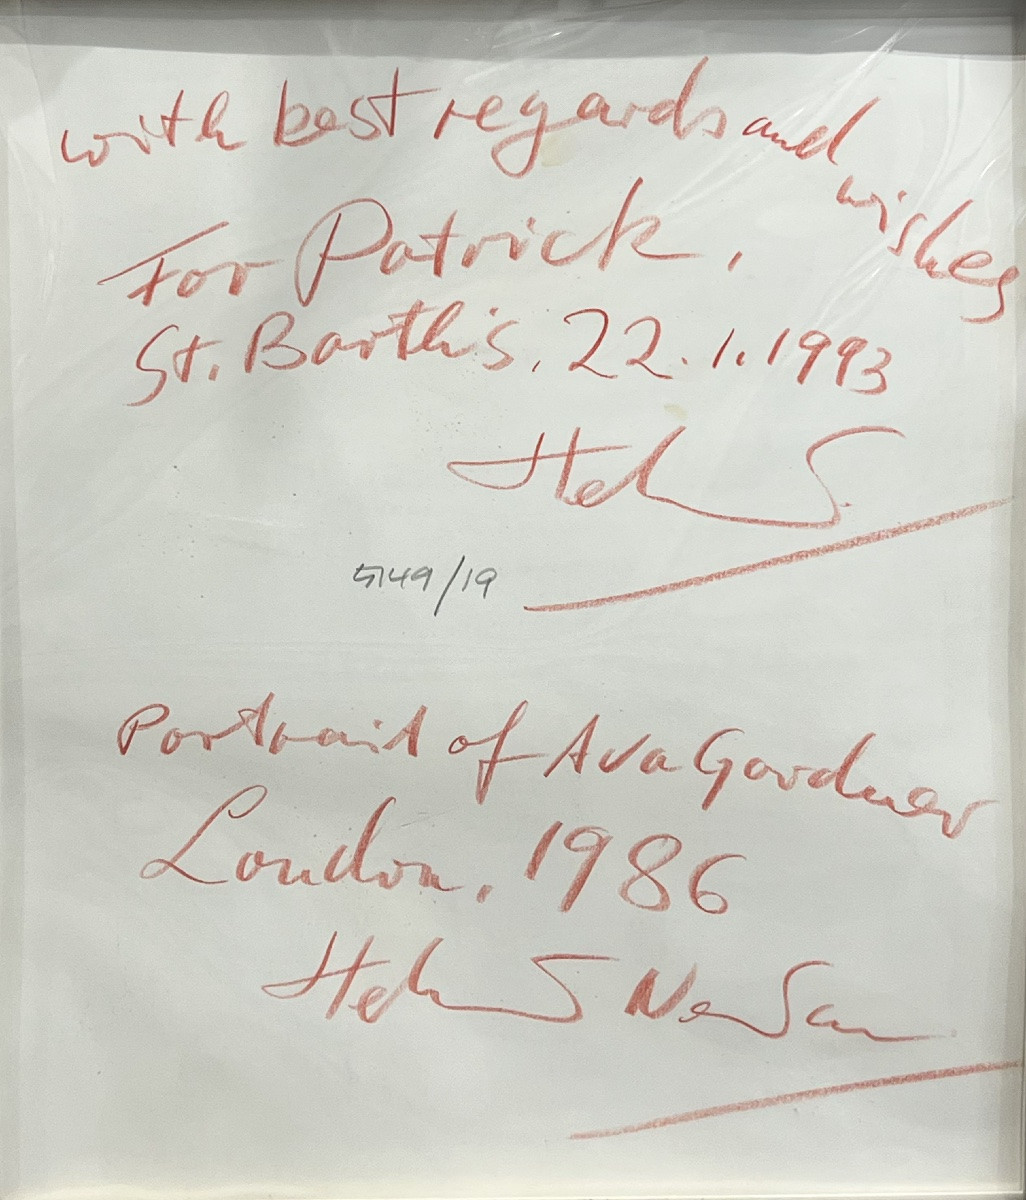 with best regards and
wishes
For Patrick,
St. Barth's, 22.1.1993
Helmut
5149/19
Portrait of Ava Gardner
London, 1986
Helmut Newton